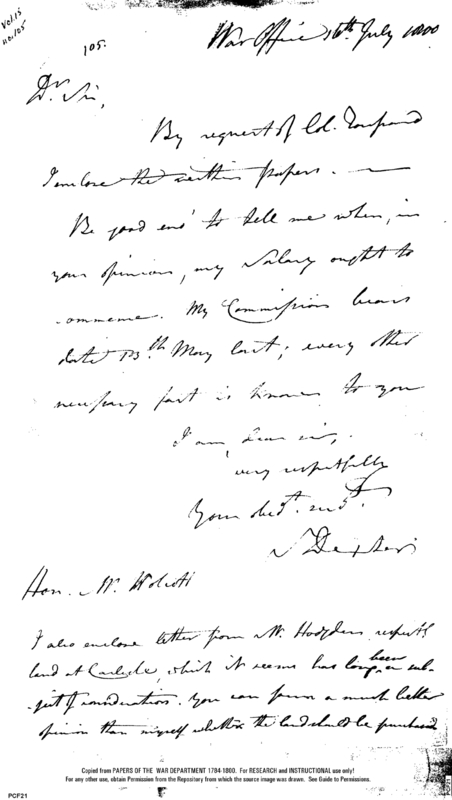 Vol 15
no. 105
105.
War Office 16th July 1800
Dr Sir,
By request of Col. Tousard
I enclose the within papers. —
Be good eno' to tell me when, in
your opinion, my Salary ought to
commence. My Commission bears
date 13th May last; every other
necessary fact is known to you
I am, dear sir,
very respectfully
Your obedt. servt.
S Dexter
Hon. Mr. Wolcott
I also enclose letter from Mr. Hodgden respectg
land at Carlisle, which it seems has long been a sub-
-ject of consideration. You can form a much better
opinion than myself whether the land should be purchased
Copied from PAPERS OF THE WAR DEPARTMENT 1784-1800. For RESEARCH and INSTRUCTIONAL use only!
For any other use, obtain Permission from the Repository from which the source image was drawn. See Guide to Permissions.
PCF21